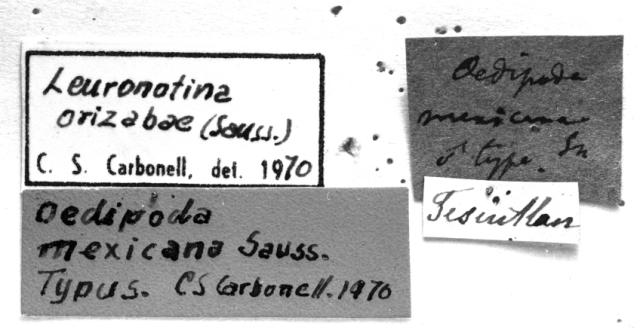 Leuronotina
orizabae (Sauss.)
C. S. Carbonell, det. 1970
Oedipoda
mexicana Sauss.
Typus. CS Carbonell. 1970
Oedipoda
mexicana
♂ type. Sn